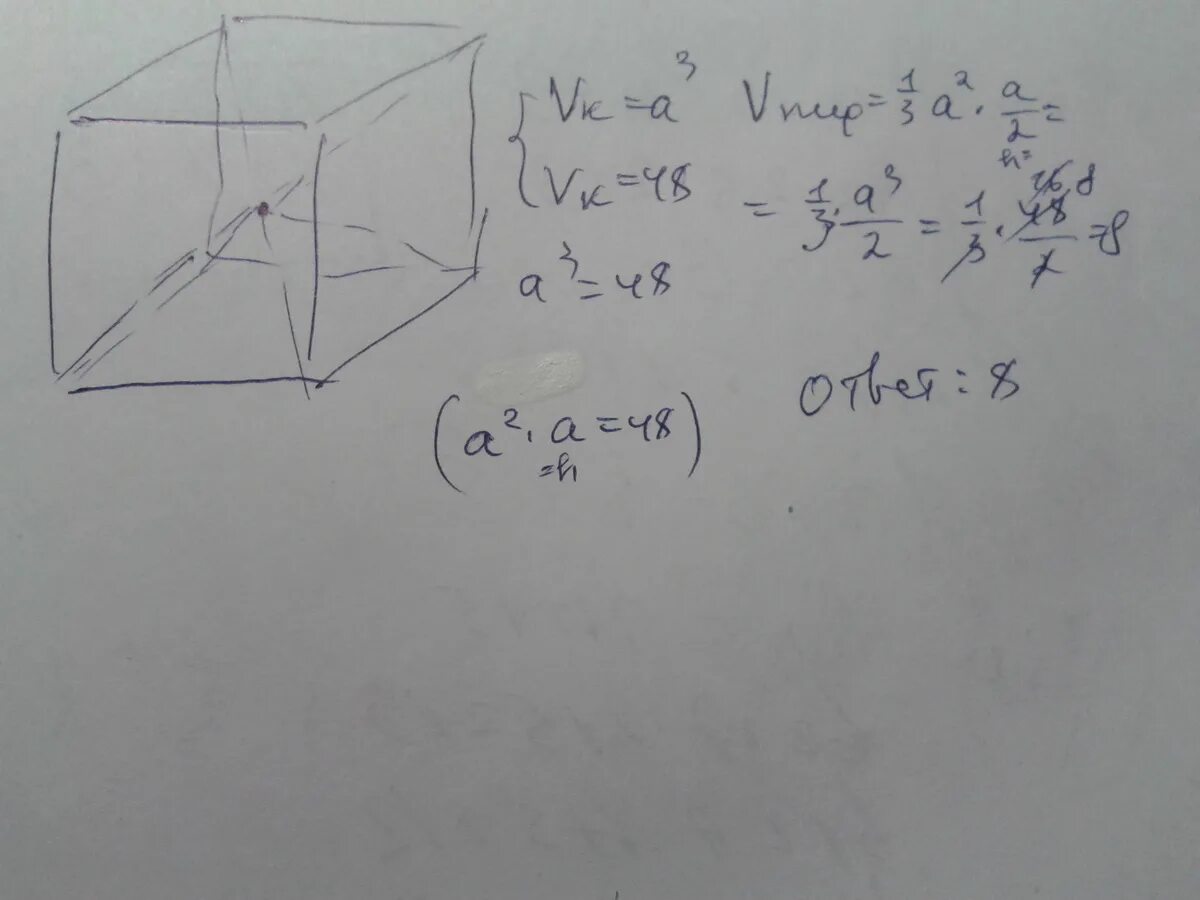 Vк = a³
Vк = 48
a³ = 48
(a² · a = 48)
= h
Vпир = 1/3 a² · a/2 =
h =
16 8
= 1/3 · a³/2 = 1/3 · 48/2 = 8
Ответ: 8